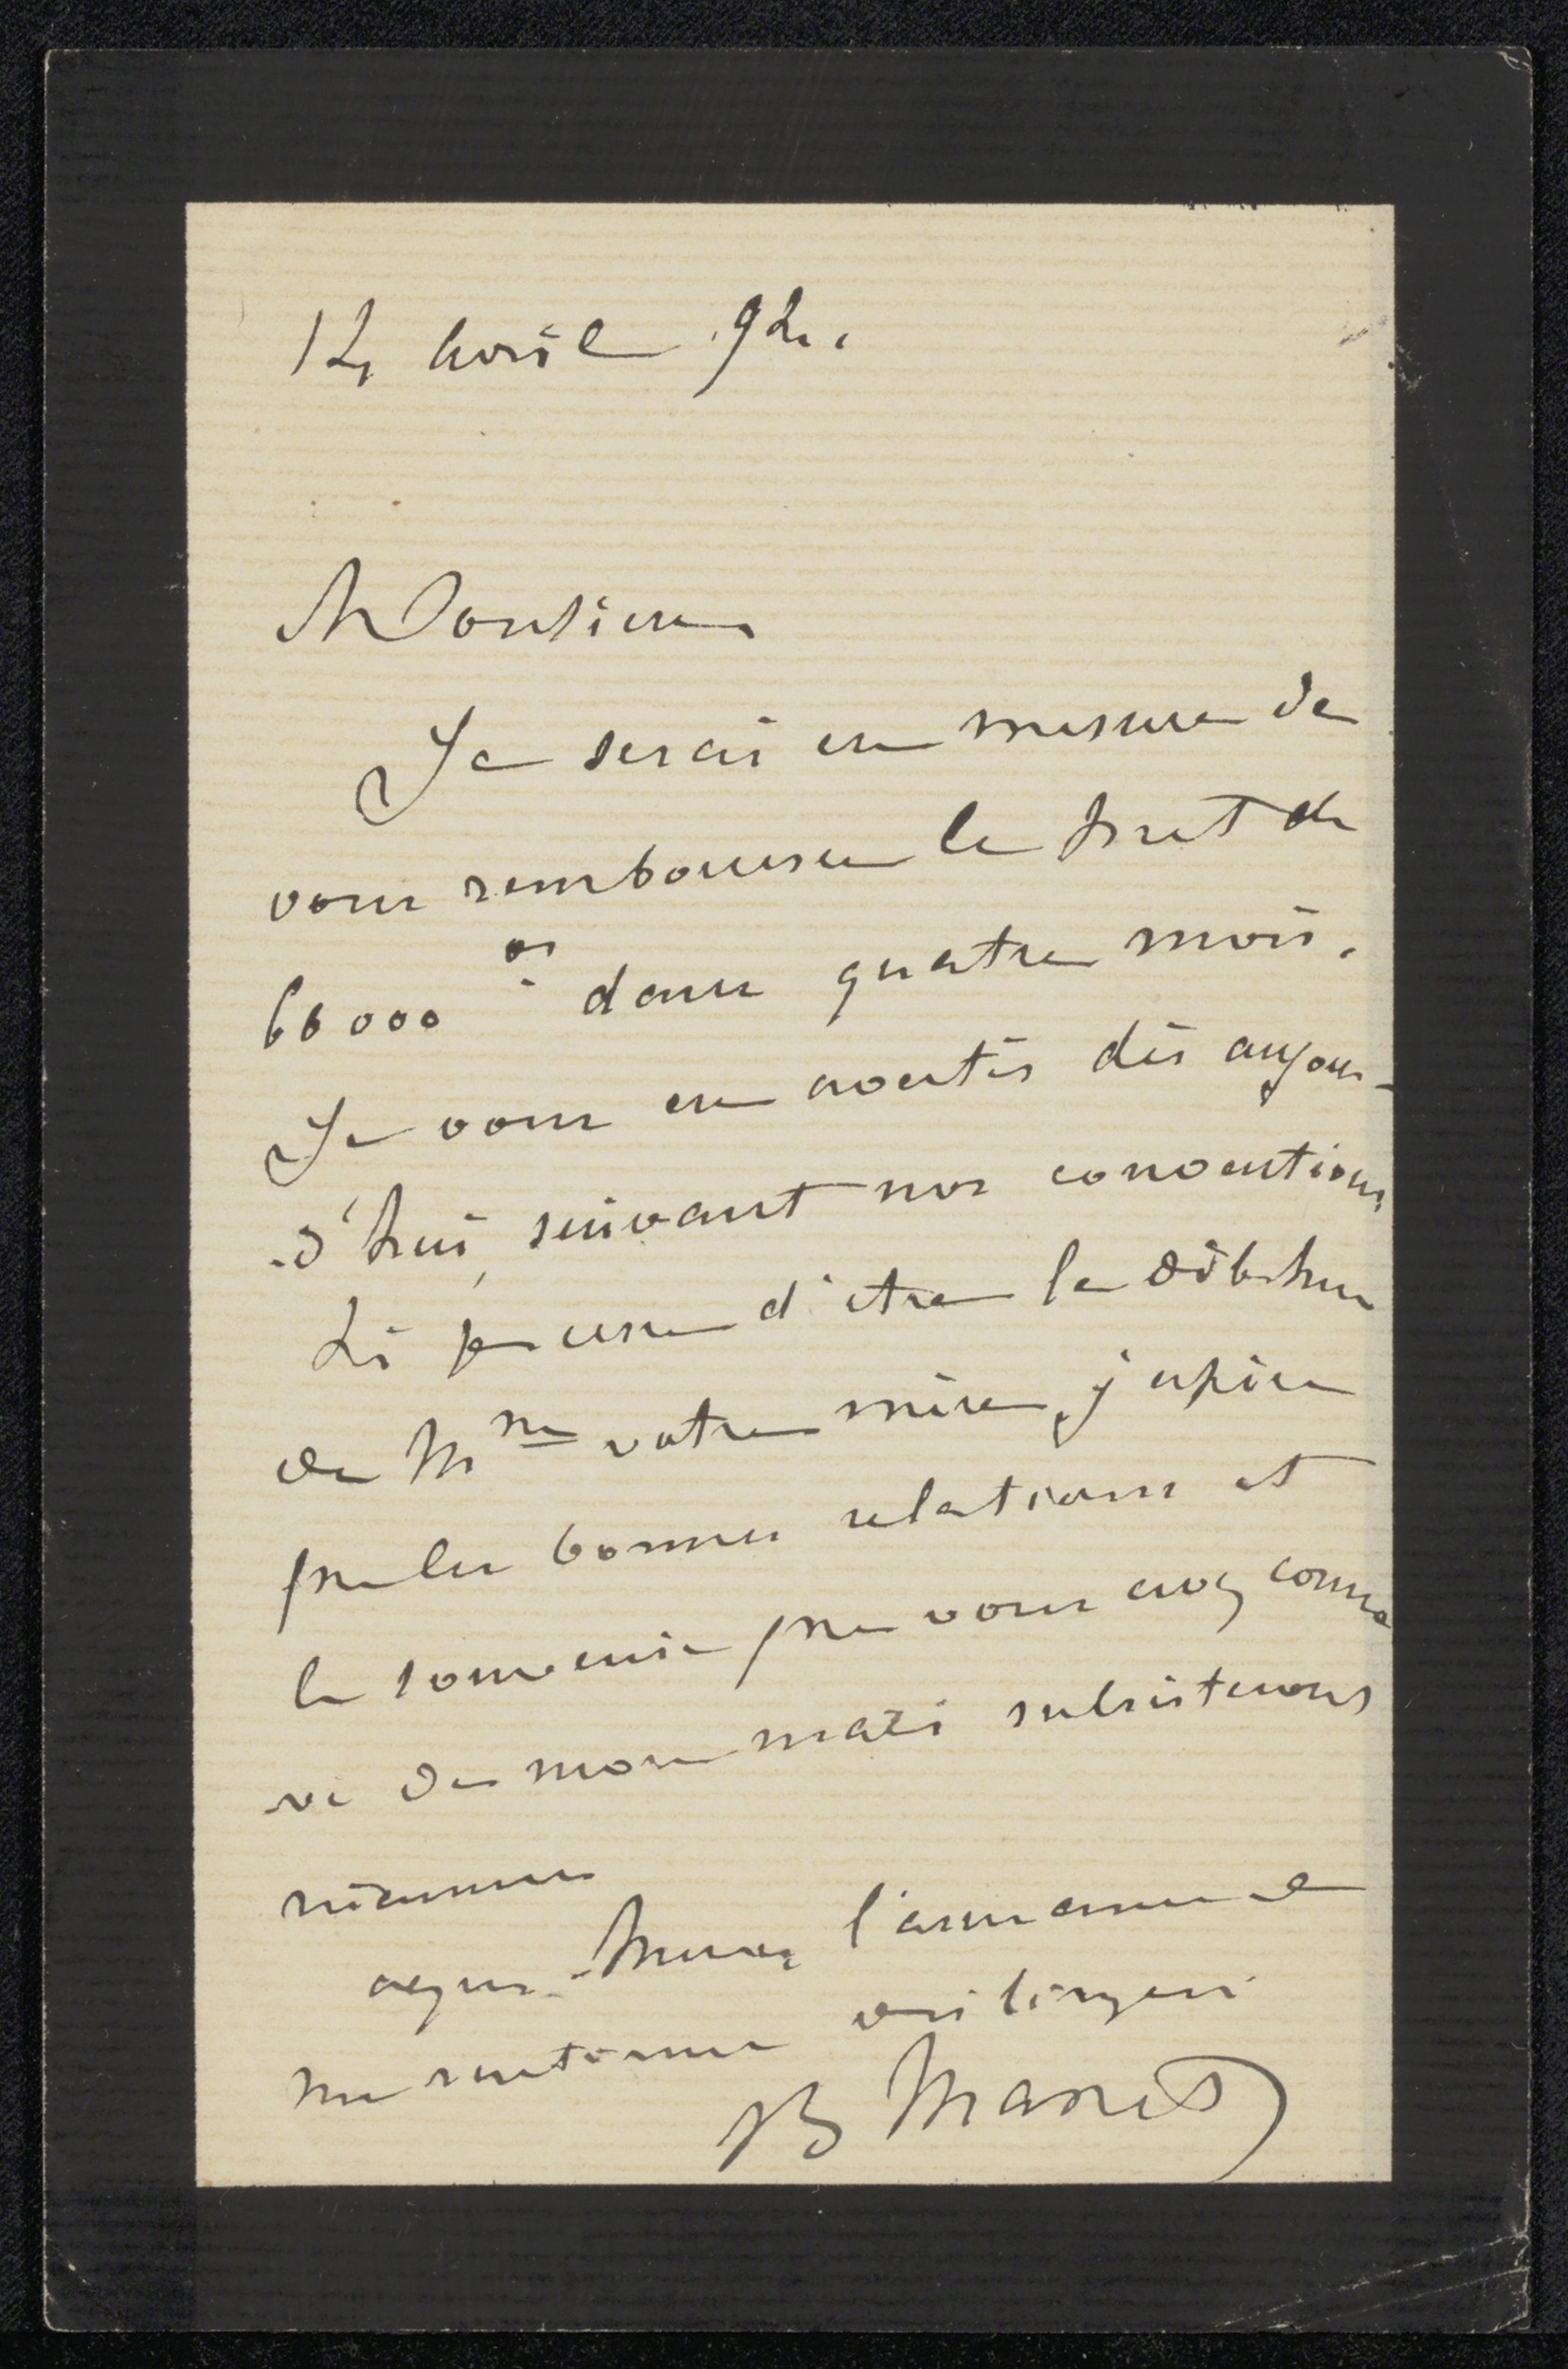 12 Avril 92.
Monsieur
Je serai en mesure de
vous rembourser le pret de
66000 dans quatre mois.
Je vous en avertis dès aujour-
d'hui, suivant nos conventions
Si je cesse d'être le débiteur
de Mme votre mère, j'espère
que les bonnes relations et
le souvenir que vous avez conser
vé de mon mari subsisterons
néanmoins
agréez Monsieur l'assurance de
mes sentiments distingués
B Manet